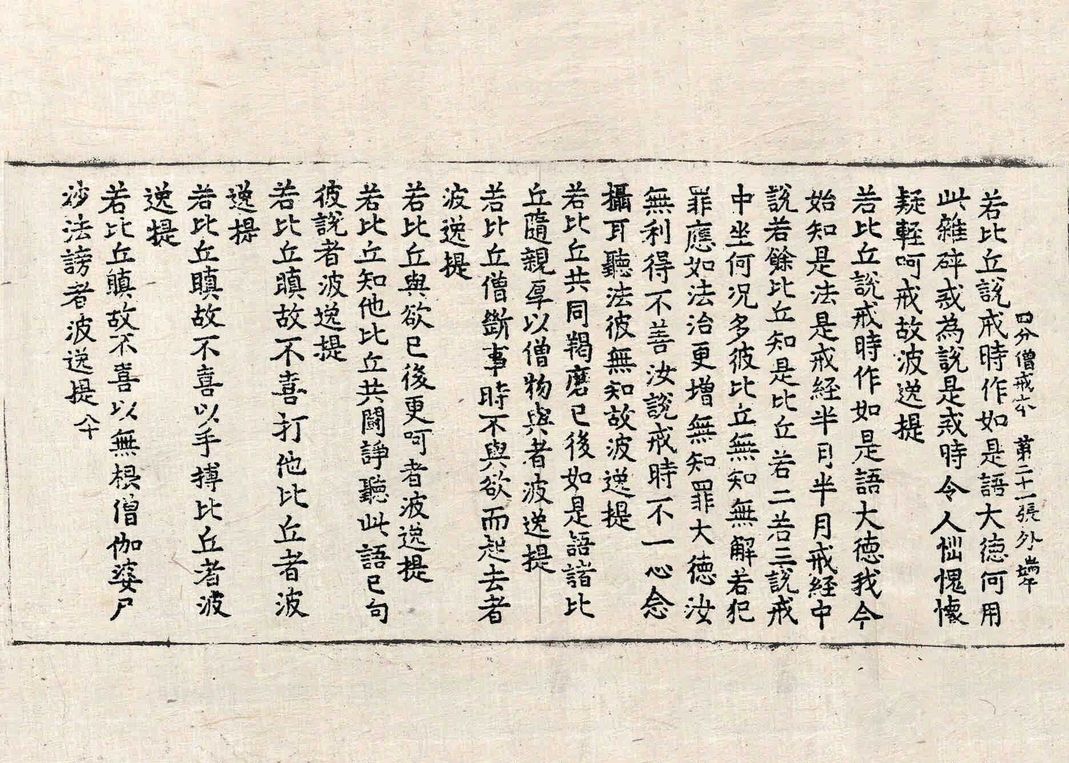 四分僧戒本 第二十一張外塲
若比丘說戒時作如是語大德何用
此雜碎戒為說是戒時令人㤰愧懷
疑輕呵戒故波逸提
若比丘說戒時作如是語大德我今
始知是法是戒經半月半月戒經中
說若餘比丘知是比丘若二若三說戒
中坐何况多彼比丘無知無解若犯
罪應如法治更增無知罪大德汝
無利得不善汝說戒時不一心念
攝耳聽法彼無知故波逸提
若比丘共同羯磨已後如是語諸比
丘隨親厚以僧物與者波逸提
若比丘僧斷事時不與欲而起去者
波逸提
若比丘與欲已後更呵者波逸提
若比丘知他比丘共鬪諍聽此語已句
彼說者波逸提
若比丘瞋故不喜打他比丘者波
逸提
若比丘瞋故不喜以手搏比丘者波
逸提
若比丘瞋故不喜以無根僧伽婆尸
沙法謗者波逸提